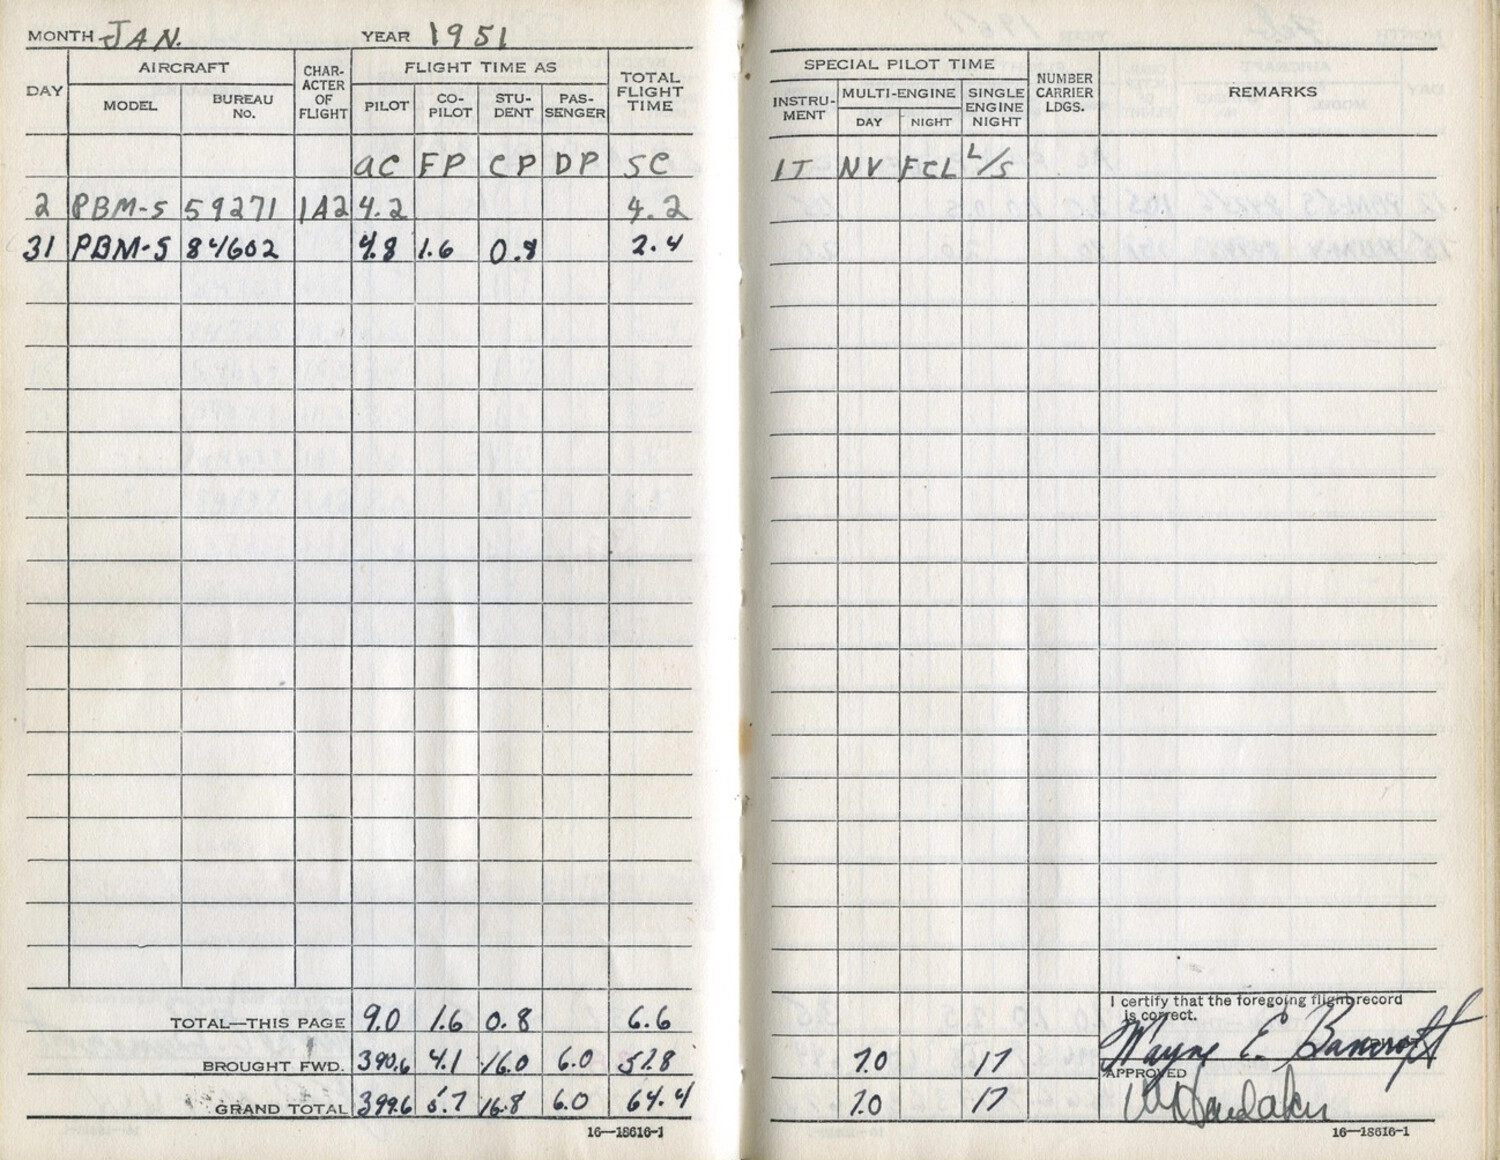 MONTH JAN. YEAR 1951
DAY AIRCRAFT MODEL BUREAU No. CHARACTER OF FLIGHT FLIGHT TIME AS PILOT CO-PILOT STUDENT PASSENGER TOTAL FLIGHT TIME
AC FP CP DP SC
2 PBM-5 59271 1A2 4.2 4.2
31 PBM-5 84602 4.8 1.6 0.8 2.4
TOTAL—THIS PAGE 9.0 1.6 0.8 6.6
BROUGHT FWD. 390.6 4.1 16.0 6.0 57.8
GRAND TOTAL 399.6 5.7 16.8 6.0 64.4
16—18616-1
SPECIAL PILOT TIME INSTRUMENT MULTI-ENGINE DAY NIGHT SINGLE ENGINE NIGHT NUMBER CARRIER LDGS. REMARKS
IT NV FCL L/S
I certify that the foregoing flight record
is correct.
Wayne E. Bancroft
7.0 17
APPROVED
7.0 17
16—18616-1